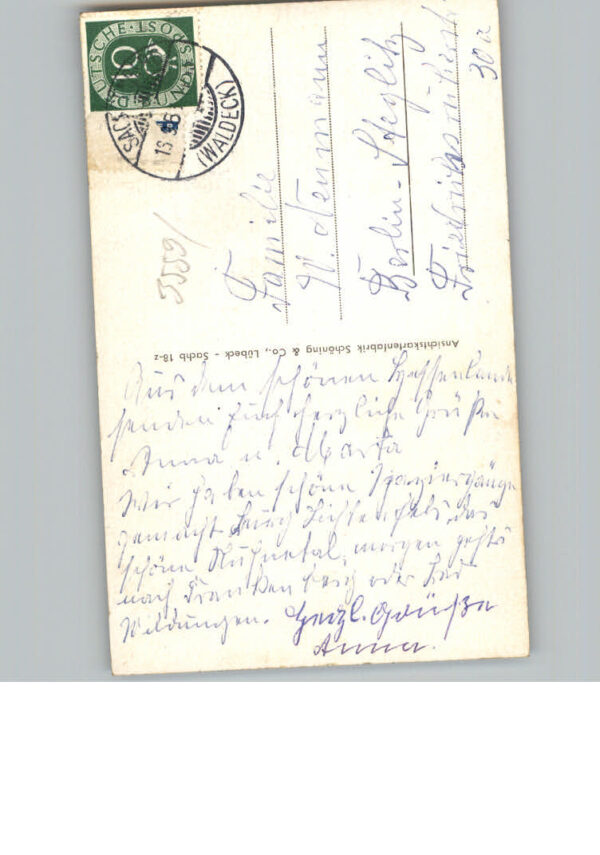 DEUTSCHE · POST
10
(WALDECK)
3559/
Familie
W. Neumann
Berlin-Steglitz
30a
Ansichtskartenfabrik Schöning & Co., Lübeck - Sachb 18-z
Aus dem schönen Hessenlande
senden Euch herzliche Grüße
Anna u. Marta
Wir haben schöne Spaziergänge
gemacht Burg Lichtenfels, das
schöne morgen gehts
nach Frankenberg oder Bad
Wildungen. Herzl. Grüße
Anna.